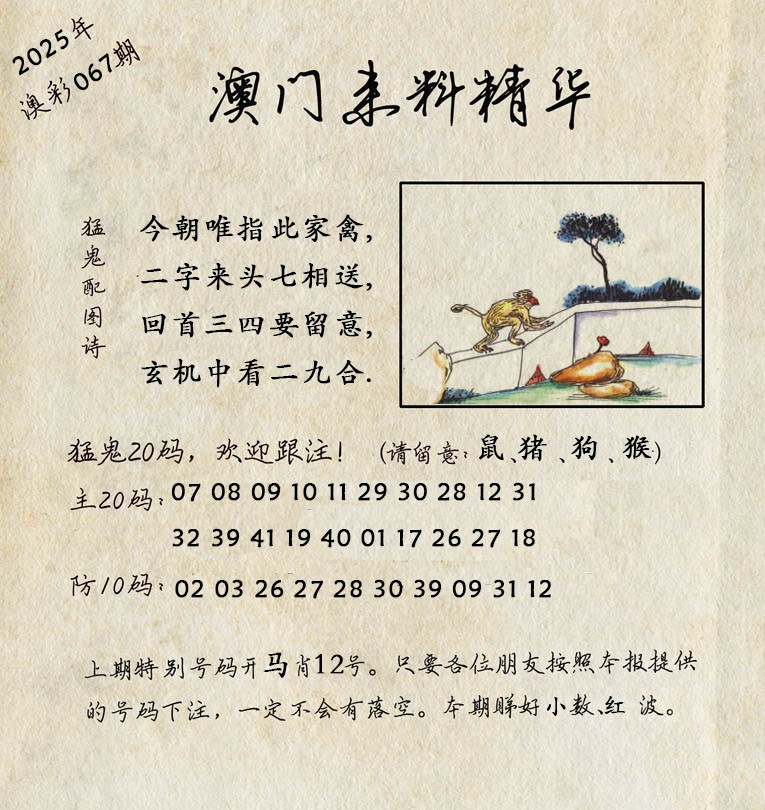 2025年
澳彩067期
澳门来料精华
猛鬼配图诗
今朝唯指此家禽,
二字来头七相送,
回首三四要留意,
玄机中看二九合.
猛鬼20码，欢迎跟注！（请留意：鼠、猪、狗、猴）
主20码：07 08 09 10 11 29 30 28 12 31
32 39 41 19 40 01 17 26 27 18
防10码：02 03 26 27 28 30 39 09 31 12
上期特别号码开马肖12号。只要各位朋友按照本报提供
的号码下注，一定不会有落空。本期睇好小数、红 波。